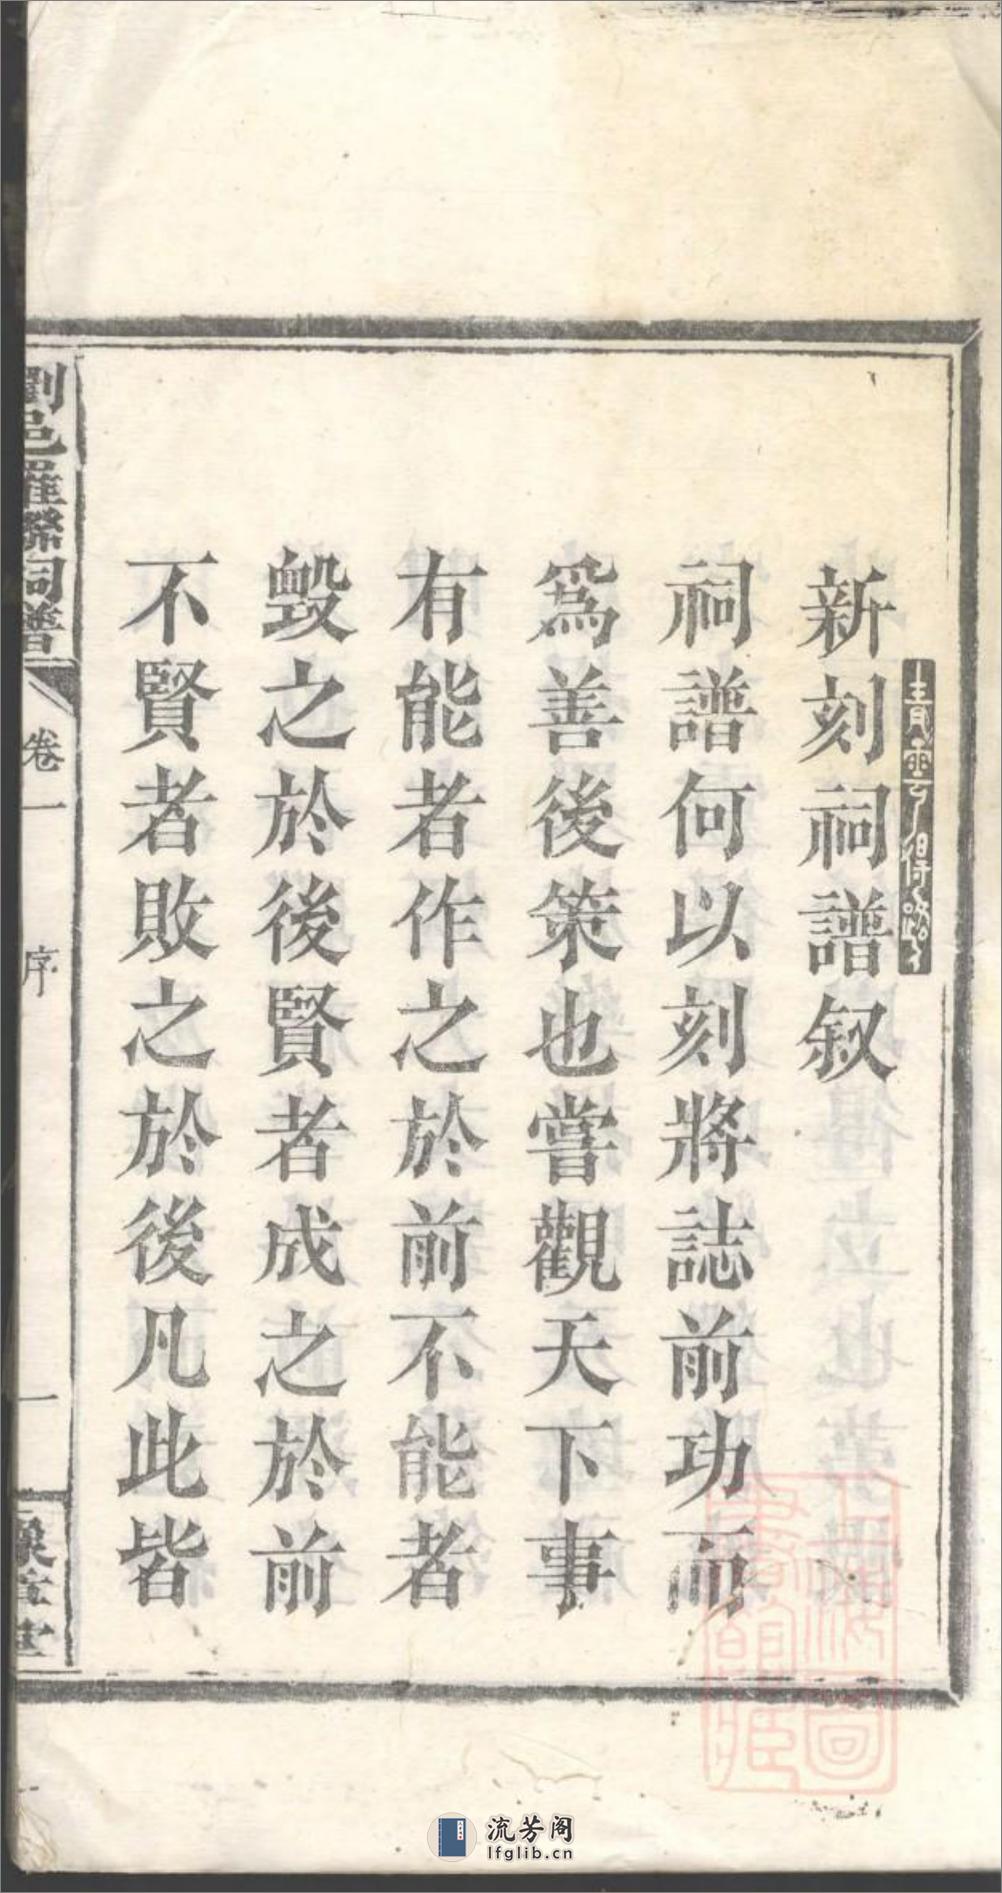 新刻祠譜叙
祠譜何以刻將誌前功而
爲善後策也嘗觀天下事
有能者作之於前不能者
毀之於後賢者成之於前
不賢者敗之於後凡此皆
瀏邑羅聯祠譜
卷一
序
一
豫章堂
青雲得路
上海圖書館藏
流芳阁
lfglib.cn